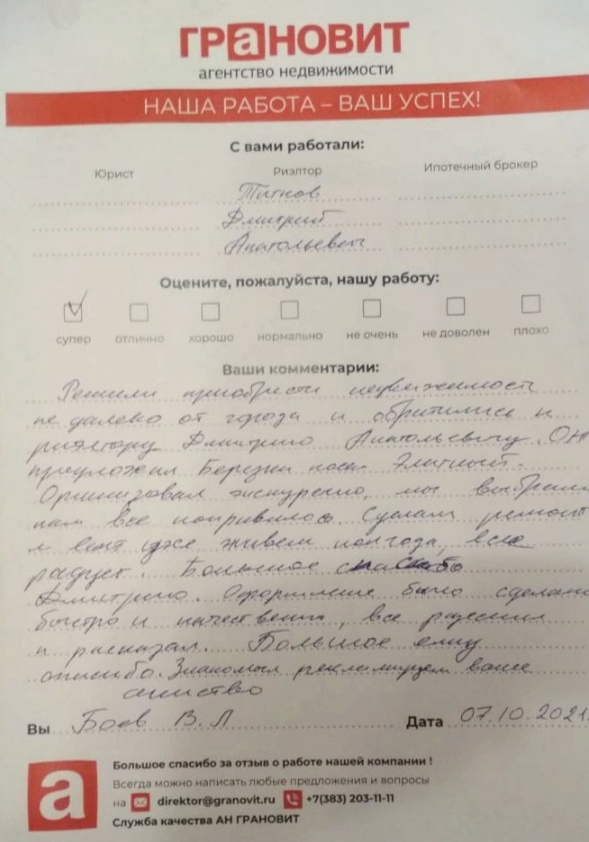 ГРаНОВИТ
агентство недвижимости
НАША РАБОТА – ВАШ УСПЕХ!
С вами работали:
Юрист Риэлтор Ипотечный брокер
Титков
Дмитрий
Анатольевич
Оцените, пожалуйста, нашу работу:
супер отлично хорошо нормально не очень не доволен плохо
Ваши комментарии:
Решили приобрести недвижимость
не далеко от города и обратились к
риэлтору Дмитрию Анатольевичу. Он
предложил Березки пос. Элитный.
Организовал экскурсию, мы выбрали
нам все понравилось. Сделали ремонт
и вот уже живем полгода, все
радует. Большое спасибо
Дмитрию. Оформление было сделано
быстро и качественно, все
и рассказал. Большое ему
спасибо. Знакомым рекламируем ваше
Вы Боев В. Л Дата 07.10.2021
а
Большое спасибо за отзыв о работе нашей компании !
Всегда можно написать любые предложения и вопросы
на direktor@granovit.ru +7(383) 203-11-11
Служба качества АН ГРАНОВИТ